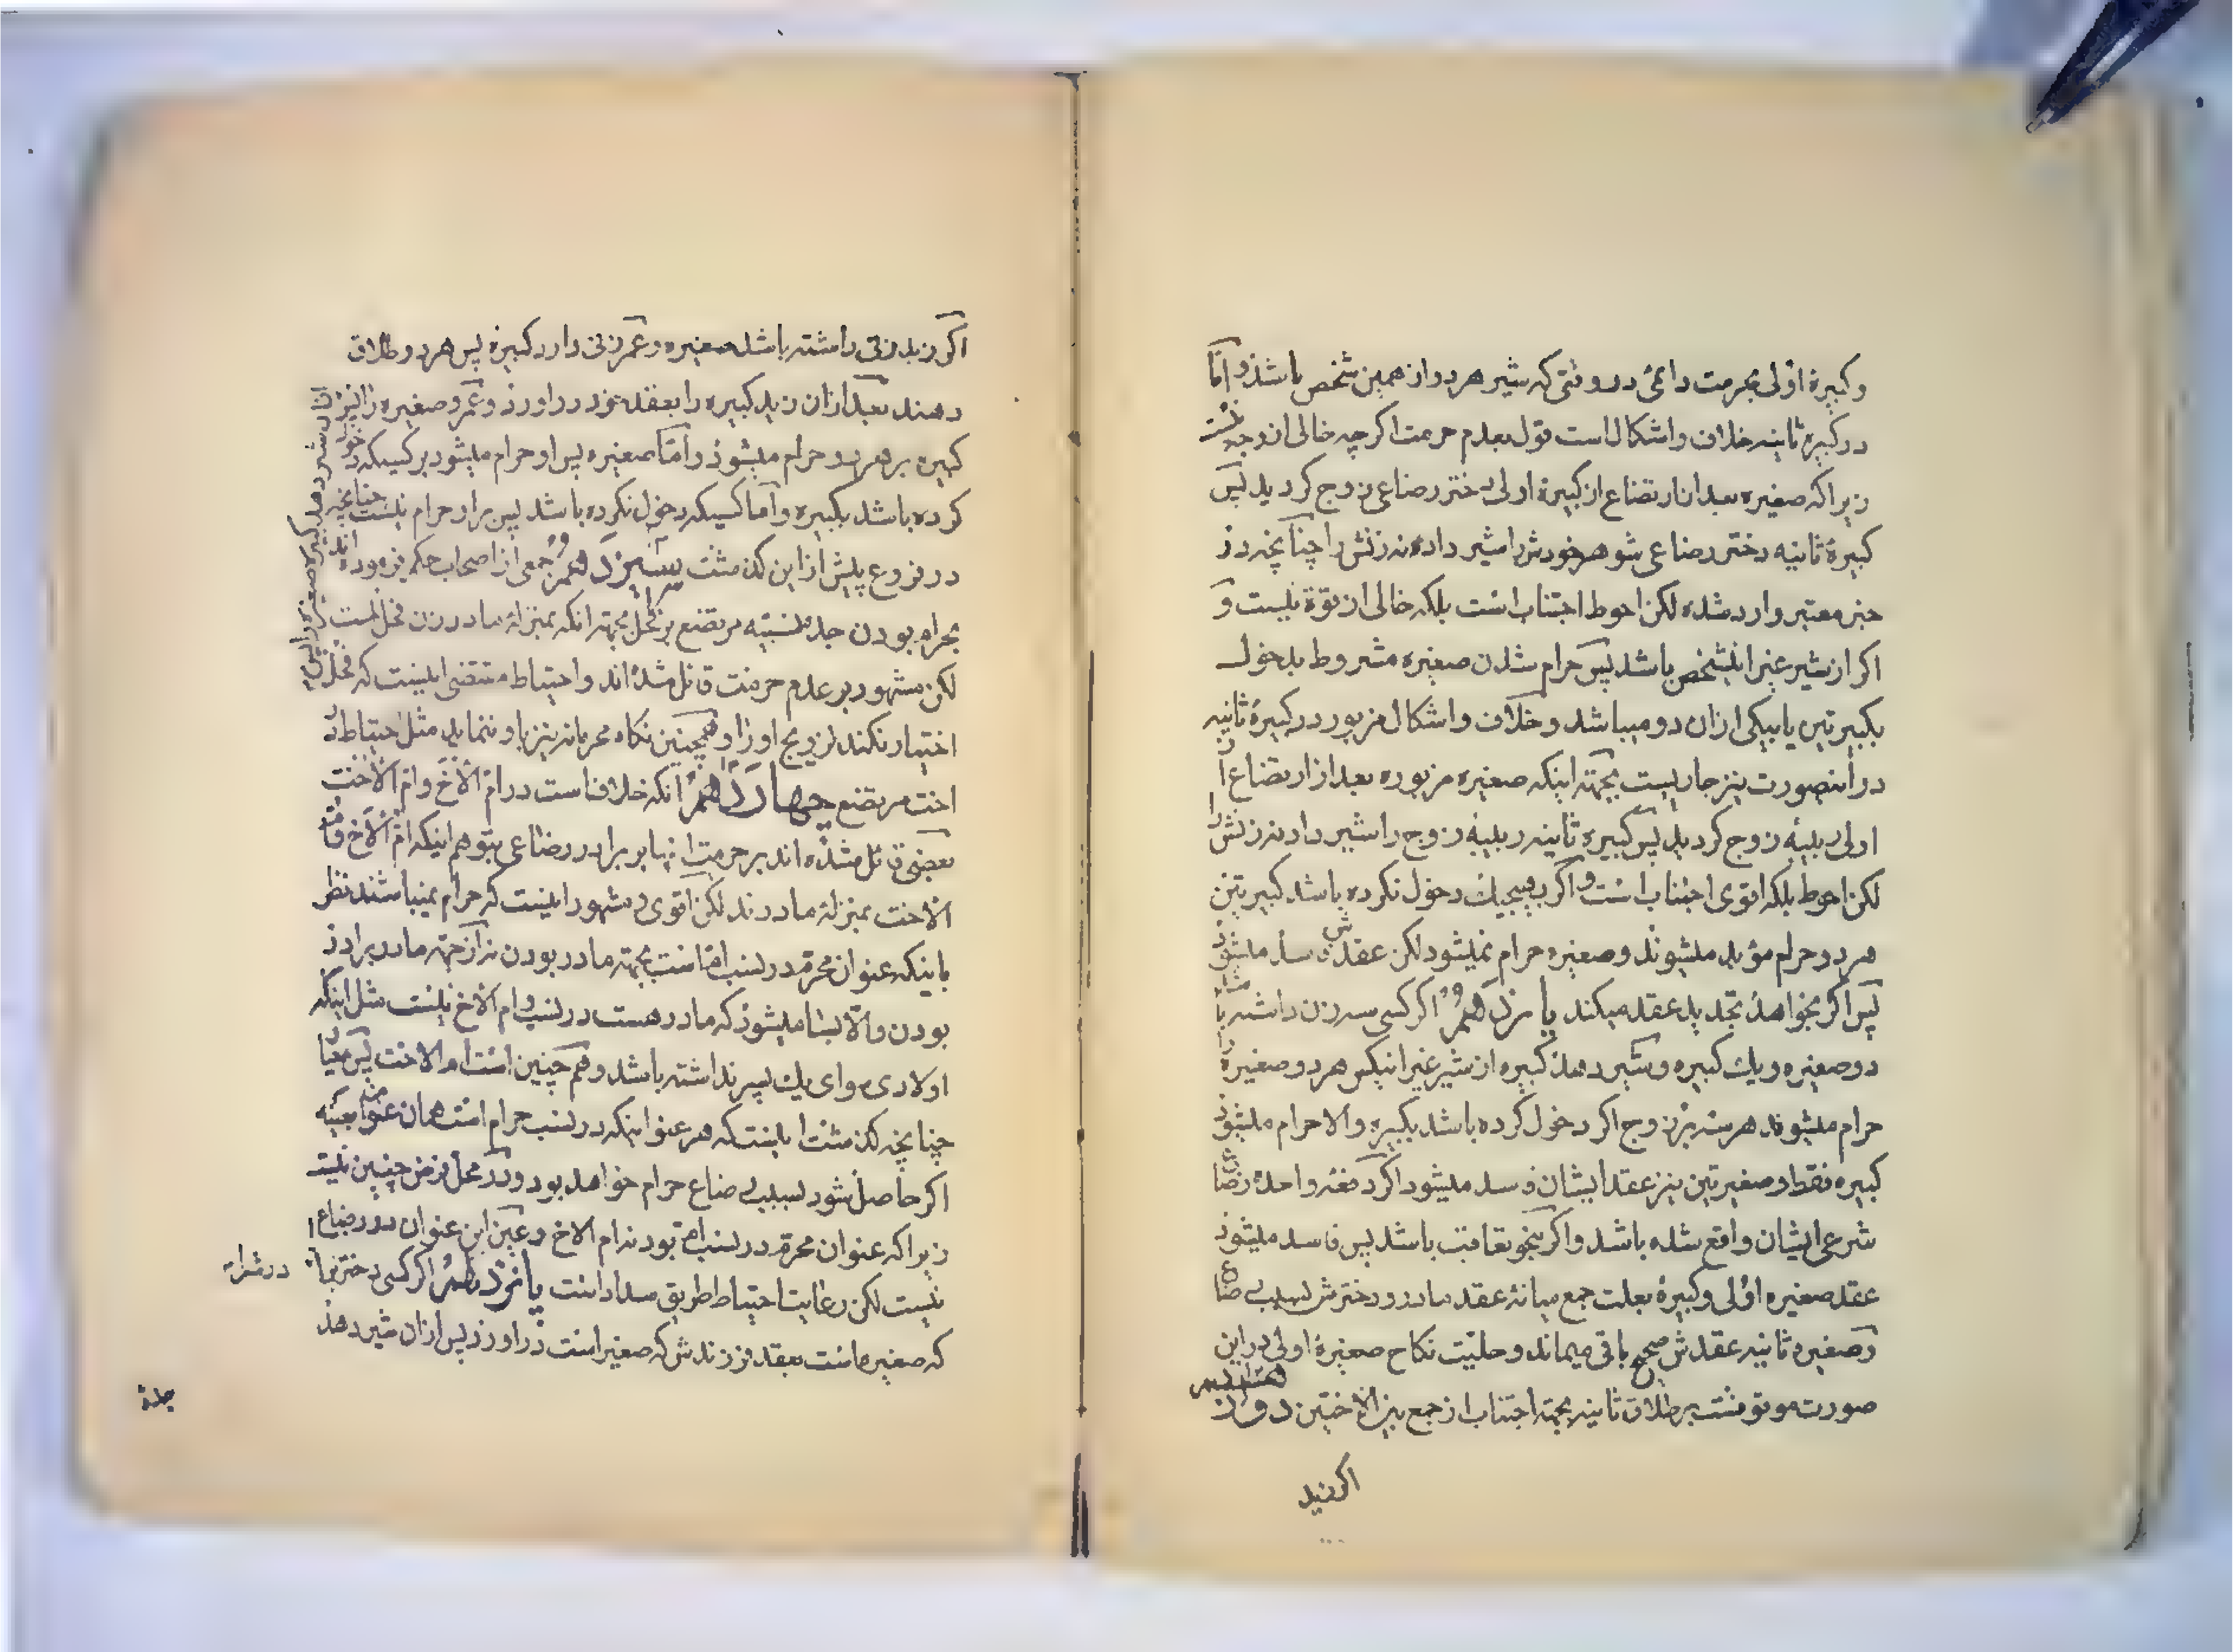 وکبیرهٔ اولی بحرمت دائمی در وقتی که شیر هر دو از همین شخص باشد و امّا
در کبیرهٔ ثانیه خلاف و اشکال است قول بعدم حرمت اکرچه خالی از وجه نیست
زیرا که صغیره بعد از ارتضاع از کبیرهٔ اولی دختر رضاعی زوج کردید پس
کبیرهٔ ثانیه دختر رضاعی شوهر خودش را شیر داده نه زنش را چنانچه در
خبر معتبر وارد شده لکن احوط اجتناب است بلکه خالی از قوّة نیست و
اکر از شیر غیر اینشخص باشد پس حرام شدن صغیره مشروط بدخول
بکبیرتین یا بیکی از ان دو میباشد و خلاف و اشکال مزبور در کبیرهٔ ثانیه
در اینصورت نیز جاریست بجهته اینکه صغیره مزبوره بعد از ارتضاع از
اولی ربیبهٔ زوج کردید پس کبیره ثانیه ربیبهٔ زوج را شیر داد نه زنش را
لکن احوط بلکه اقوی اجتناب است و اکر بهیچیک دخول نکرده باشد کبیرتین
هر دو حرام مؤبد میشوند و صغیره حرام نمیشود لکن عقدش فاسد میشود
پس اکر بخواهد تجدید عقد میکند یازدهم اکر کسی سه زن داشته باشد
دو صغیره و یک کبیره و شیر دهد کبیره از شیر غیر اینکس هر دو صغیره را
حرام میشوند هر سه بر زوج اکر دخول کرده باشد بکبیره والا حرام میشود
کبیره فقط و صغیرتین نیز عقد ایشان فاسد میشود اکر دفعهٔ واحده رضاع
شرعی ایشان واقع شده باشد و اکر بنحو تعاقب باشد پس فاسد میشود
عقد صغیره اولی و کبیرهٔ بعلت جمع میانهٔ عقد مادر و دخترش بسبب رضاع
و صغیره ثانیه عقدش صحیح باقی میماند و حلیّت نکاح صغیرهٔ اولی در این
صورت موقوفست بر طلاق ثانیه بجهته اجتناب از جمع بین الاختین دوازدهم
اکر زید
اکر زید زنی داشته باشد صغیره و عمر زنی دارد کبیره پس هر دو طلاق
دهند بعد از ان زید کبیره را بعقد خود دراورد و عمرو صغیره را نیز
کبیره بر هر دو حرام میشود و امّا صغیره پس او حرام میشود بر کسیکه دخول
کرده باشد بکبیره و امّا کسیکه دخول نکرده باشد پس بر او حرام نیست چنانچه
در فروع پیش از این کذشت سیزدهم جمعی از اصحاب حکم فرموده اند
بحرام بودن جدهٔ نسبیّه مرتضع بر فحل بجهته انکه بمنزلهٔ مادر زن فحل است
لکن مشهور بر عدم حرمت قائل شده اند و احتیاط مقتضی اینست که فحل
اختیار نکند تزویج او را و همچنین نکاه محرمانه نیز باو ننماید مثل احتیاط در
اخت مرتضع چهاردهم انکه خلافست در امّ الاخ و امّ الاخت
بعضی قائل شده اند بر حرمت انها بر برادر رضاعی بتوهم اینکه امّ الاخ و امّ
الاخت بمنزلهٔ مادرند لکن اقوی و مشهور اینست که حرام نمیباشند نظر
باینکه عنوان محرّم در نسب امّ است بجهته مادر بودن نه از جهته مادر برادر
بودن والّا بسا میشود که مادر هست در نسب و ام الاخ نیست مثل اینکه
اولادی سوای یک پسر نداشته باشد و همچنین است ام الاخت پس بنا
چنانچه کذشت اینست که هر عنوانیکه در نسب حرام است همان عنوان بعینه
اکر حاصل شود بسبب رضاع حرام خواهد بود و در محل فرض چنین نیست
زیرا که عنوان محرّم در نسب ام بود نه ام الاخ و عین این عنوان در رضاع
نیست لکن رعایت احتیاط طریق سداد است پانزدهم اکر کسی دختر
که صغیره است بعقد فرزندش که صغیر است دراورد پس از ان شیر دهد
جدهٔ